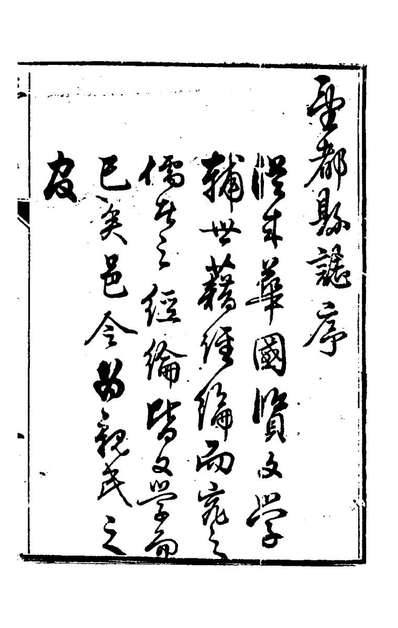 望都縣誌序
從來華國資文學
輔世藉經綸而究之
儒者之經綸皆文學而
已矣邑令為親民之
官